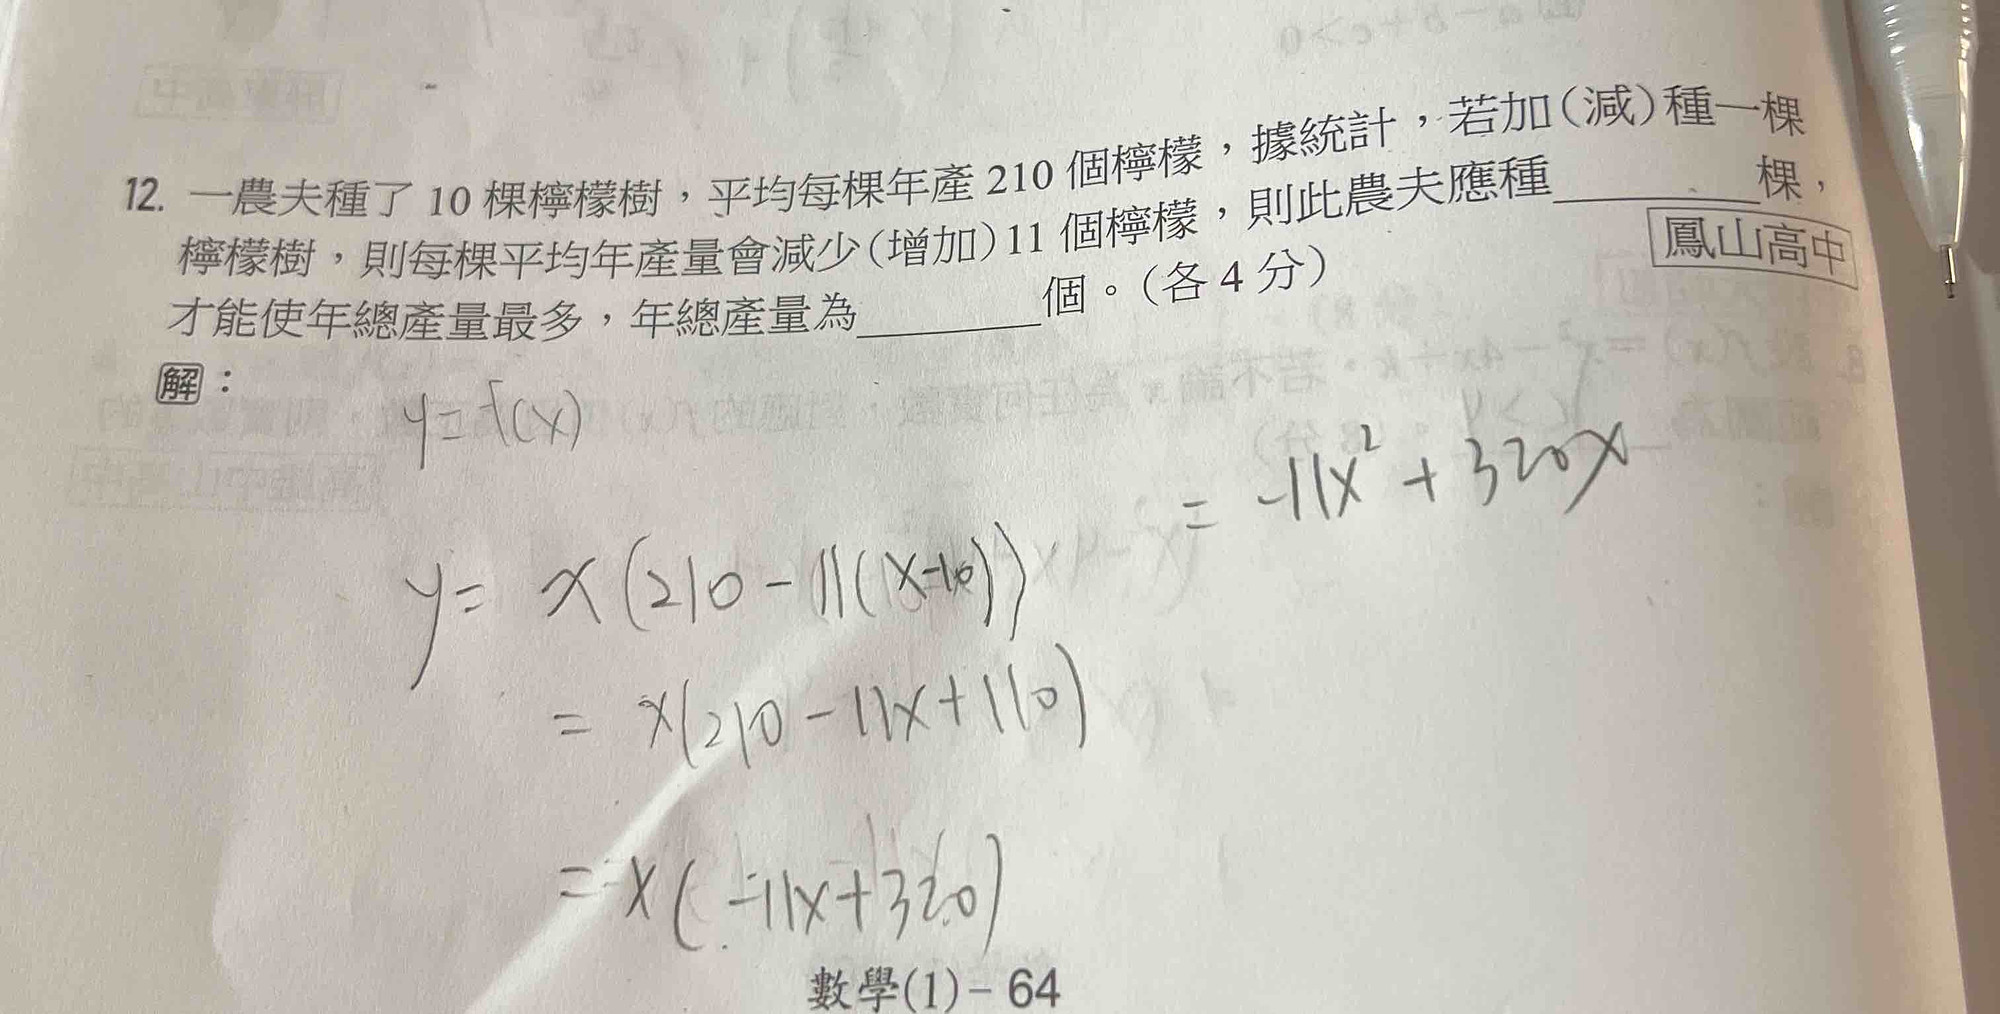 12. 一農夫種了 10 棵檸檬樹，平均每棵年產 210 個檸檬，據統計，若加(減)種一棵
檸檬樹，則每棵平均年產量會減少(增加)11 個檸檬，則此農夫應種________棵，
才能使年總產量最多，年總產量為________個。(各 4 分)
鳳山高中
解：
y=f(x)
y= x(210-11(x-10))
= x(210-11x+110)
= x(-11x+320)
= -11x²+320x
數學(1)－64